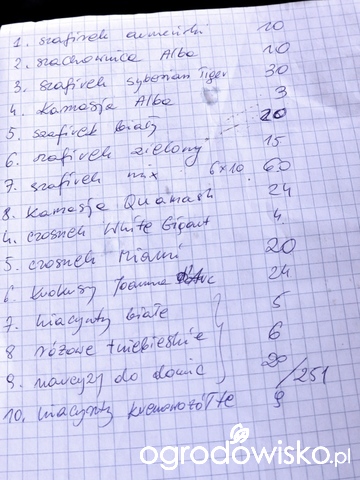 1. szafirek armeński 10
2. szachownica Alba 10
3. szafirek syberian Tiger 30
4. Kamasja Alba 3
5. szafirek biały 20
6. szafirek zielony 15
7. szafirek mix 6x10 60
8. Kamasja Quamash 24
4. czosnek White Gigant 4
5. czosnek Miami 20
6. krokusy Joanna 24
7. hiacynty białe 5
8 różowe + niebieskie 6
9. narcyzy do donic 20 /251
10. hiacynty kremowożółte 9
ogrodowisko.pl